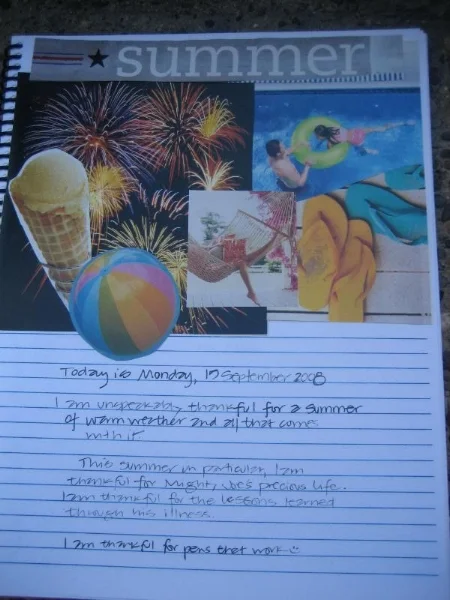 summer
Today is Monday, 15 September 2008
I am unspeakably thankful for a summer
of warm weather and all that comes
with it
This summer in particular, I am
thankful for Mighty Joe's precious life.
I am thankful for the lessons learned
through his illness.
I am thankful for pens that work